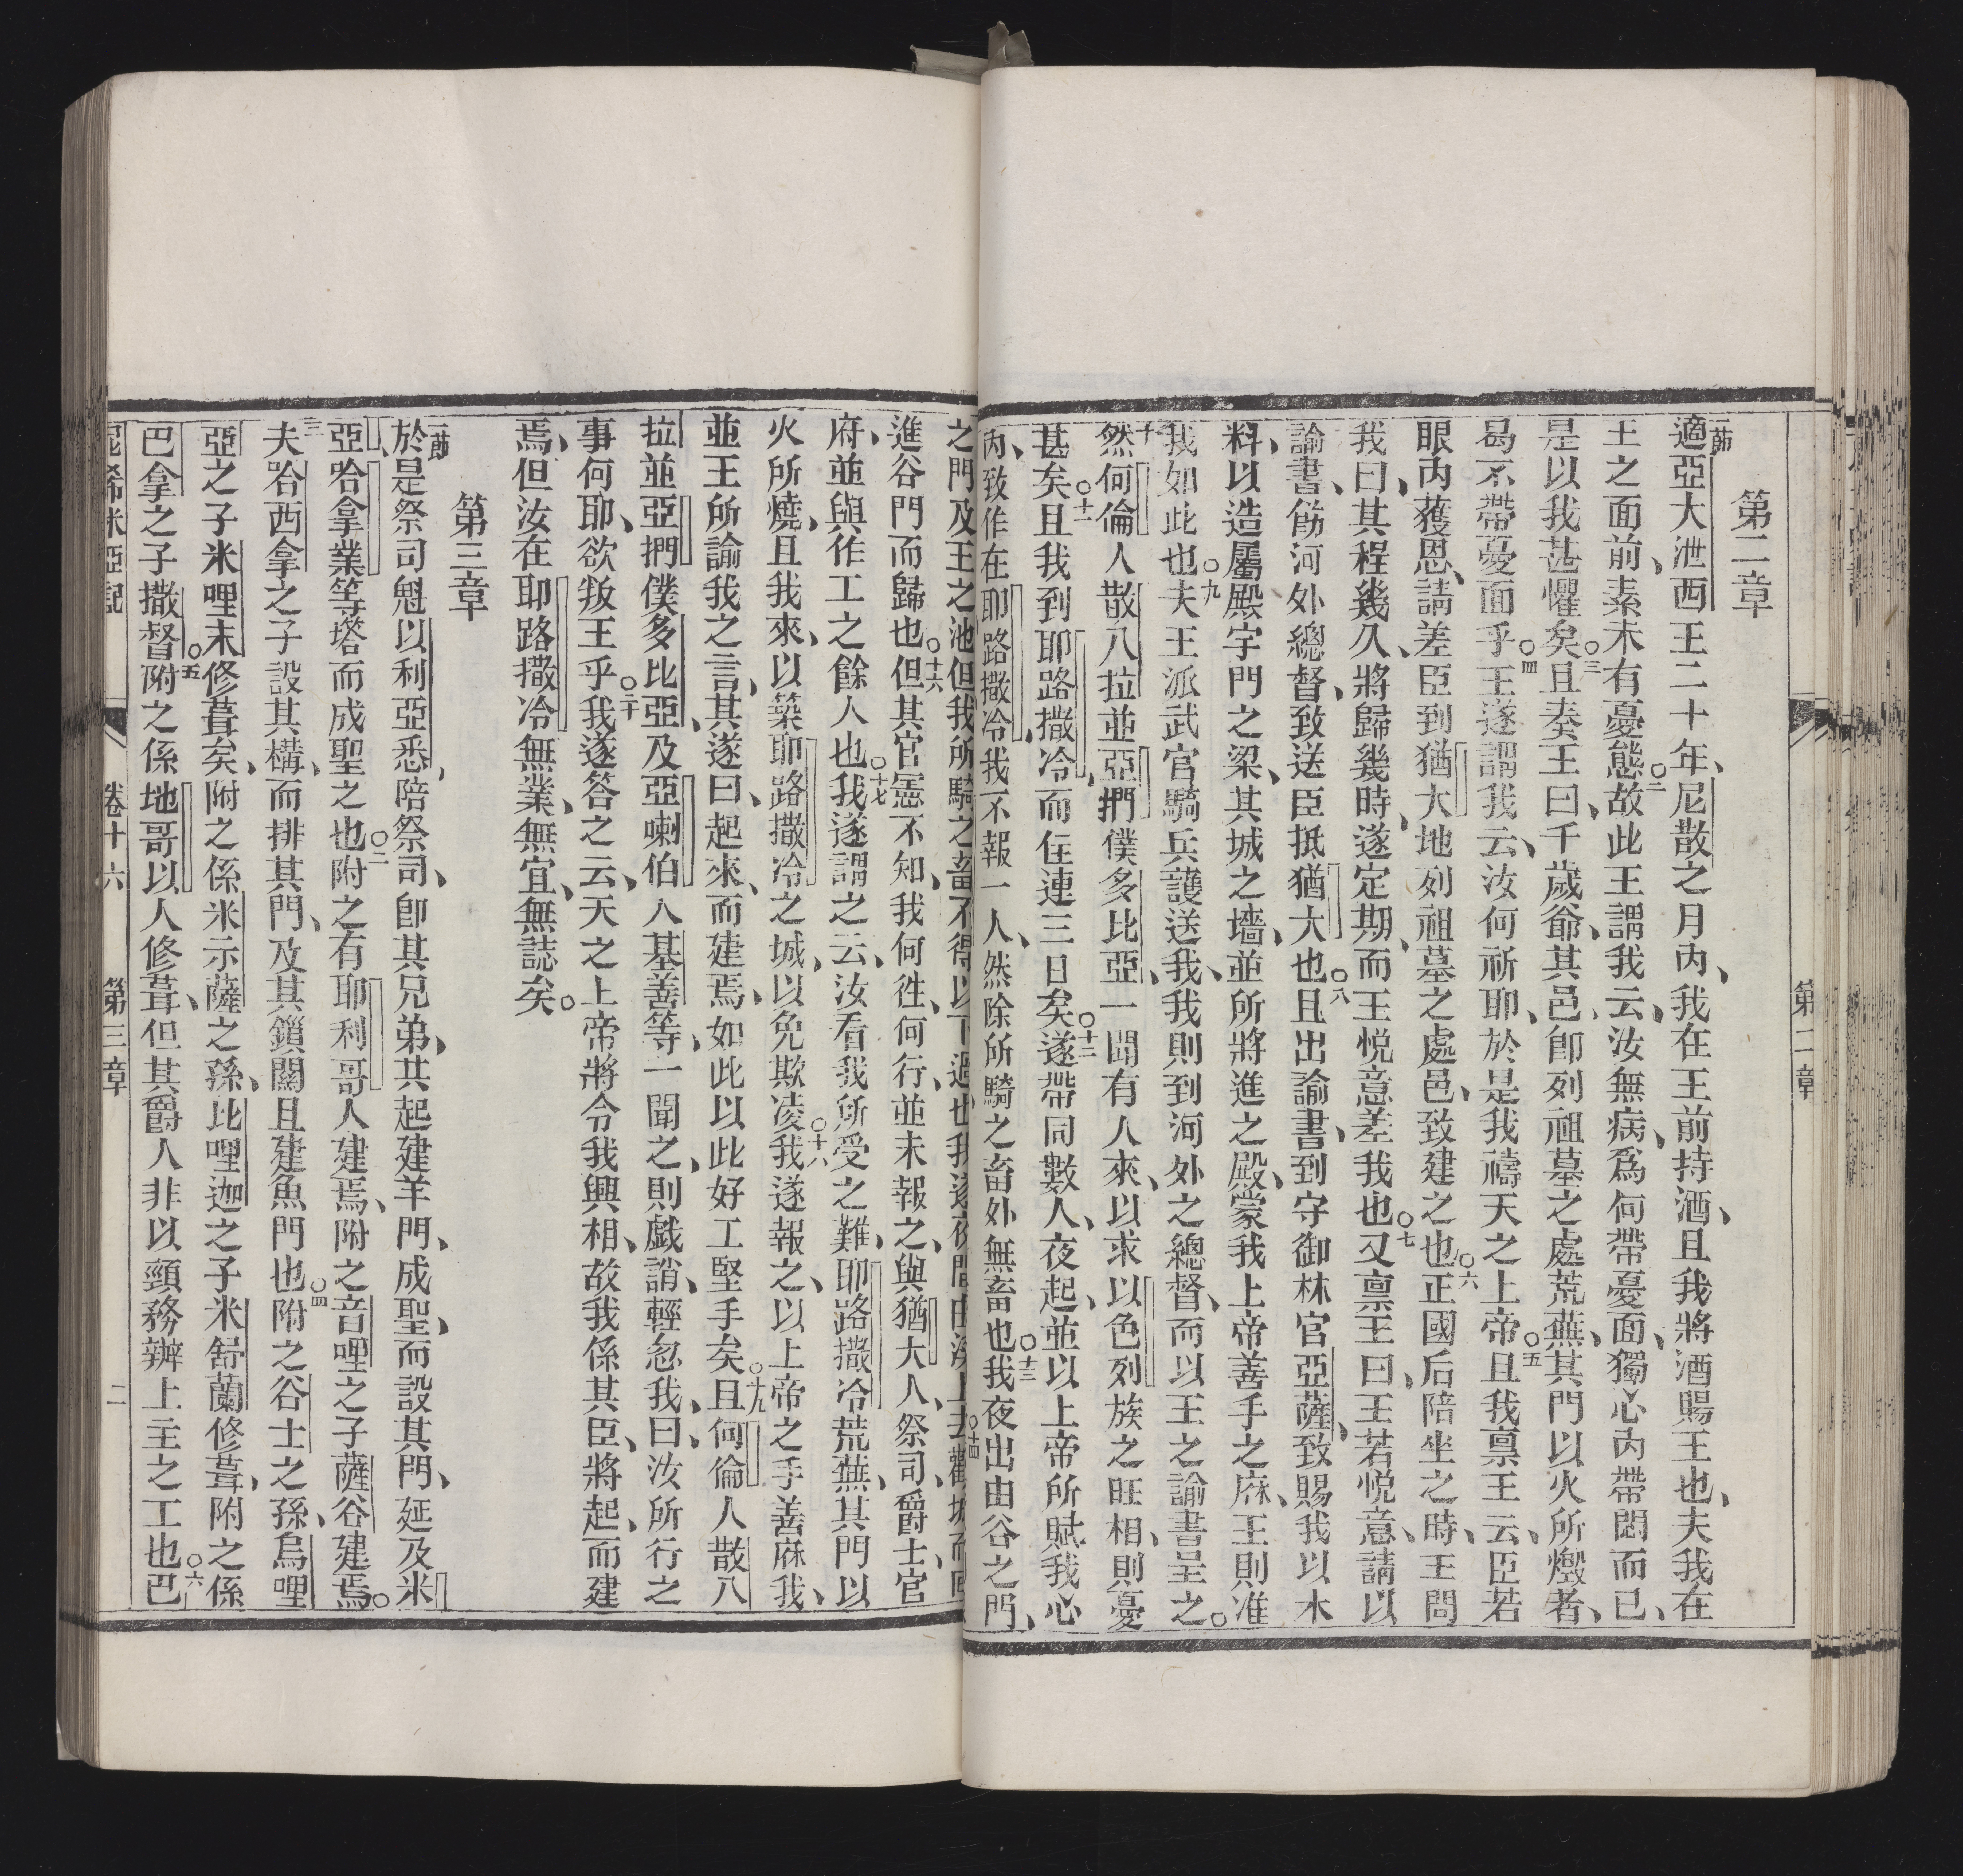 第二章
第二章
一節適亞大泄西王二十年、尼散之月內、我在王前持酒、且我將酒賜王也、夫我在
王之面前、素未有憂態○二故此王謂我云、汝無病、爲何帶憂面、獨心內帶悶而已、
是以我甚懼矣○三且奏王曰、千歲爺、其邑卽列祖墓之處荒蕪、其門以火所燬者、
曷不帶憂面乎○四王遂謂我云、汝何祈耶、於是我禱天之上帝○五且我稟王云、臣若
眼內獲恩、請差臣到猶大地列祖墓之處邑、致建之也○六正國后陪坐之時、王問
我曰、其程幾久、將歸幾時、遂定期、而王悅意差我也○七又稟王曰、王若悅意、請以
諭書、飭河外總督、致送臣抵猶大也○八且出諭書、到守御林官亞薩、致賜我以木
料、以造屬殿宇門之梁、其城之墻、並所將進之殿、蒙我上帝善手之庥、王則准
我如此也○九夫王派武官騎兵護送我、我則到河外之總督、而以王之諭書呈之○
十然何倫人散八拉並亞捫僕多比亞、一聞有人來、以求以色列族之旺相、則憂
甚矣○十一且我到耶路撒冷、而住連三日矣○十二遂帶同數人、夜起、並以上帝所賦我心
內、致作在耶路撒冷、我不報一人、然除所騎之畜外無畜也○十三我夜出由谷之門、
之門及王之池、但我所騎之畜不得以下過也、我遂夜間由溪上去○十四觀城而回
進谷門而歸也○十六但其官憲不知、我何徃、何行、並未報之、與猶大人、祭司、爵士、官
府、並與作工之餘人也○十七我遂謂之云、汝看我所受之難、耶路撒冷荒蕪、其門以
火所燒、且我來、以築耶路撒冷之城、以免欺凌○十八我遂報之、以上帝之手善庥我、
並王所諭我之言、其遂曰、起來、而建焉、如此以此好工堅手矣○十九且何倫人散八
拉並亞捫僕多比亞、及亞喇伯人基善等、一聞之、則戲誚、輕忽我、曰、汝所行之
事何耶、欲叛王乎○二十我遂答之云、天之上帝將令我興相、故我係其臣、將起、而建
焉、但汝在耶路撒冷無業、無宜、無誌矣○
第三章
一節於是祭司魁以利亞悉、陪祭司、卽其兄弟、共起建羊門、成聖、而設其門、延及米
亞、哈拿業等塔而成聖之也○二附之有耶利哥人建焉、附之音哩之子薩谷建焉○
三夫哈西拿之子設其構、而排其門、及其鎖關且建魚門也○四附之谷士之孫、烏哩
亞之子米哩末修葺矣、附之係米示薩之孫、比哩迦之子米舒蘭修葺、附之係
巴拿之子撒督○五附之係地哥以人修葺、但其爵人非以頸務辦上主之工也○六巴
尼希米亞記 卷十六 第三章 二